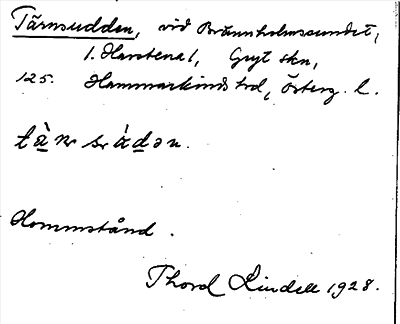 Tärnsudden, vid Brännholmssundet,
1. Harstena 1, Gryt skn,
125. Hammarkinds hrd, Österg. l.
Hommstånd.
Thord Lindell 1928.